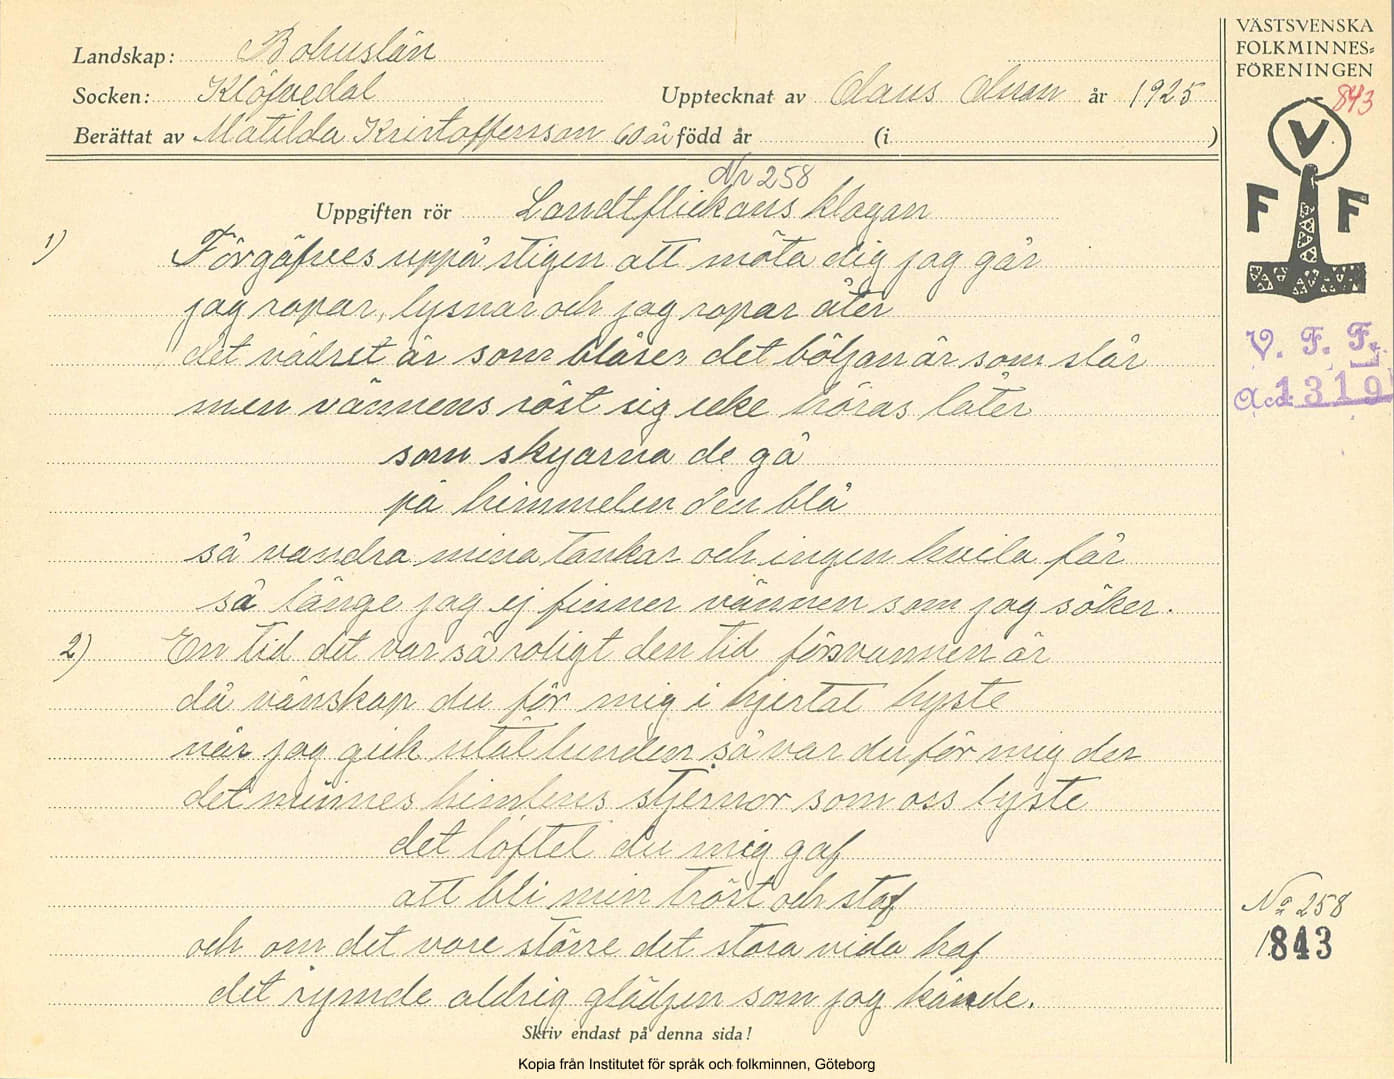 Landskap: Bohuslän
Socken: Klöfvedal Upptecknat av Olaus Olsson år 1925
Berättat av Matilda Kristoffersson 60 år född år (i )
Nr 258
Uppgiften rör Landtflickans klagan
1) Förgäfves uppå stigen att möta dig jag går
jag ropar, lyssnar och jag ropar åter
det vädret är som blåser det böljan är som slår
men vännens röst sig icke höras låter
som skyarna de gå
på himmelen den blå
så vandra mina tankar och ingen hvila får
så länge jag ej finner vännen som jag söker.
2) En tid det var så roligt den tid försvunnen är
då vänskap du för mig i hjertat hyste
när jag gick utåt lunden så var du för mig der
det minnes himlens stjernor som oss lyste
det löftet du mig gaf
att bli min tröst och staf
och om det vore större det stora vida haf
det rymde aldrig glädjen som jag kände.
Skriv endast på denna sida!
Kopia från Institutet för språk och folkminnen, Göteborg
VÄSTSVENSKA
FOLKMINNES-
FÖRENINGEN
843
V
F F
V. F. F.
Acc. 1319
No 258
1843